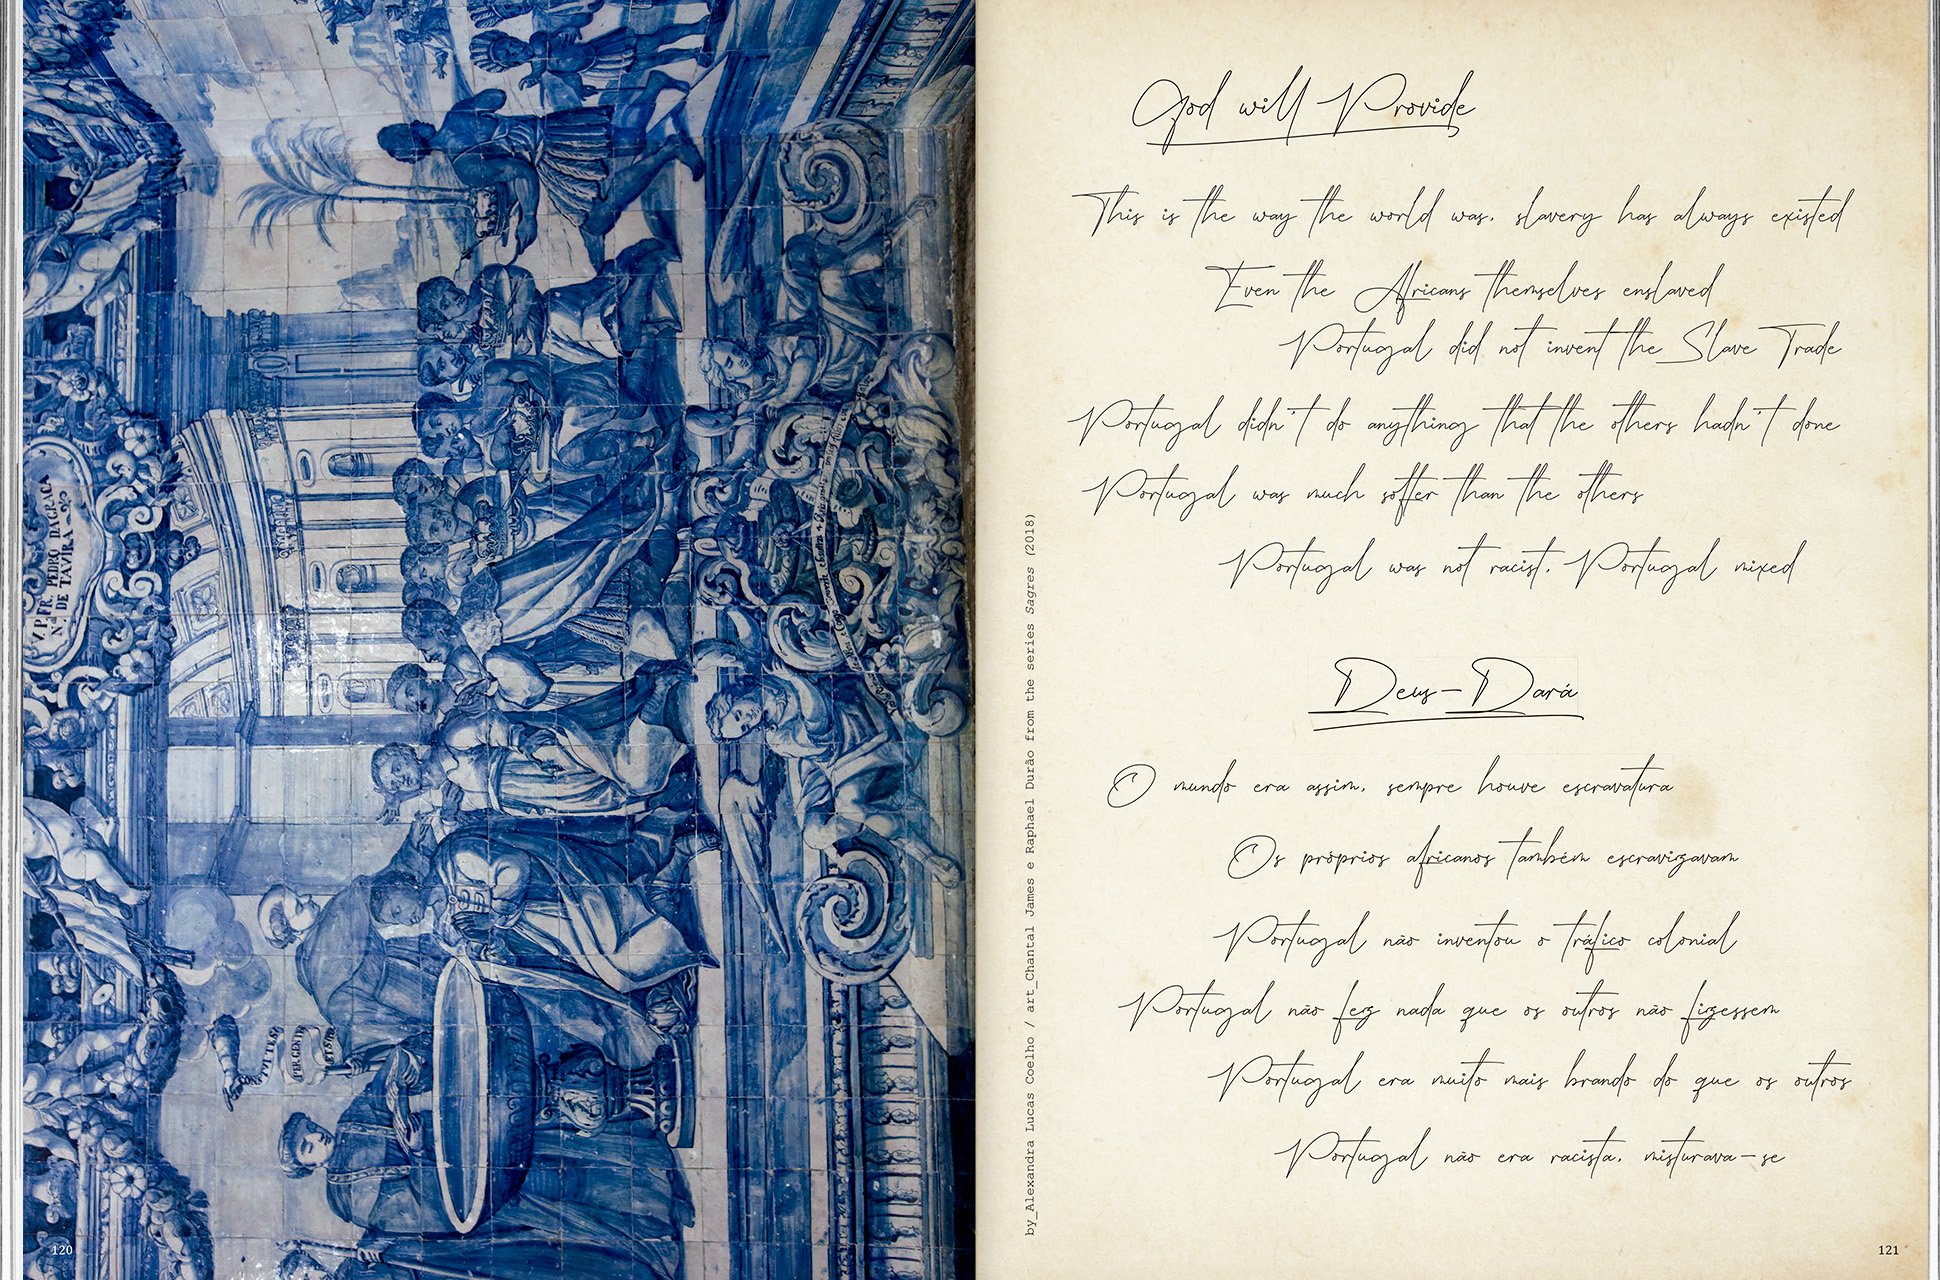 V. P. FR. PEDRO DAGRAÇA
N.al DE TAVIRA
PER GENTES
120
God will Provide
This is the way the world was, slavery has always existed
Even the Africans themselves enslaved
Portugal did not invent the Slave Trade
Portugal didn't do anything that the others hadn't done
Portugal was much softer than the others
Portugal was not racist, Portugal mixed
Deus-Dará
O mundo era assim, sempre houve escravatura
Os próprios africanos também escravizavam
Portugal não inventou o tráfico colonial
Portugal não fez nada que os outros não fizessem
Portugal era muito mais brando do que os outros
Portugal não era racista, misturava-se
by_Alexandra Lucas Coelho / art_Chantal James e Raphael Durão from the series Sagres (2018)
121